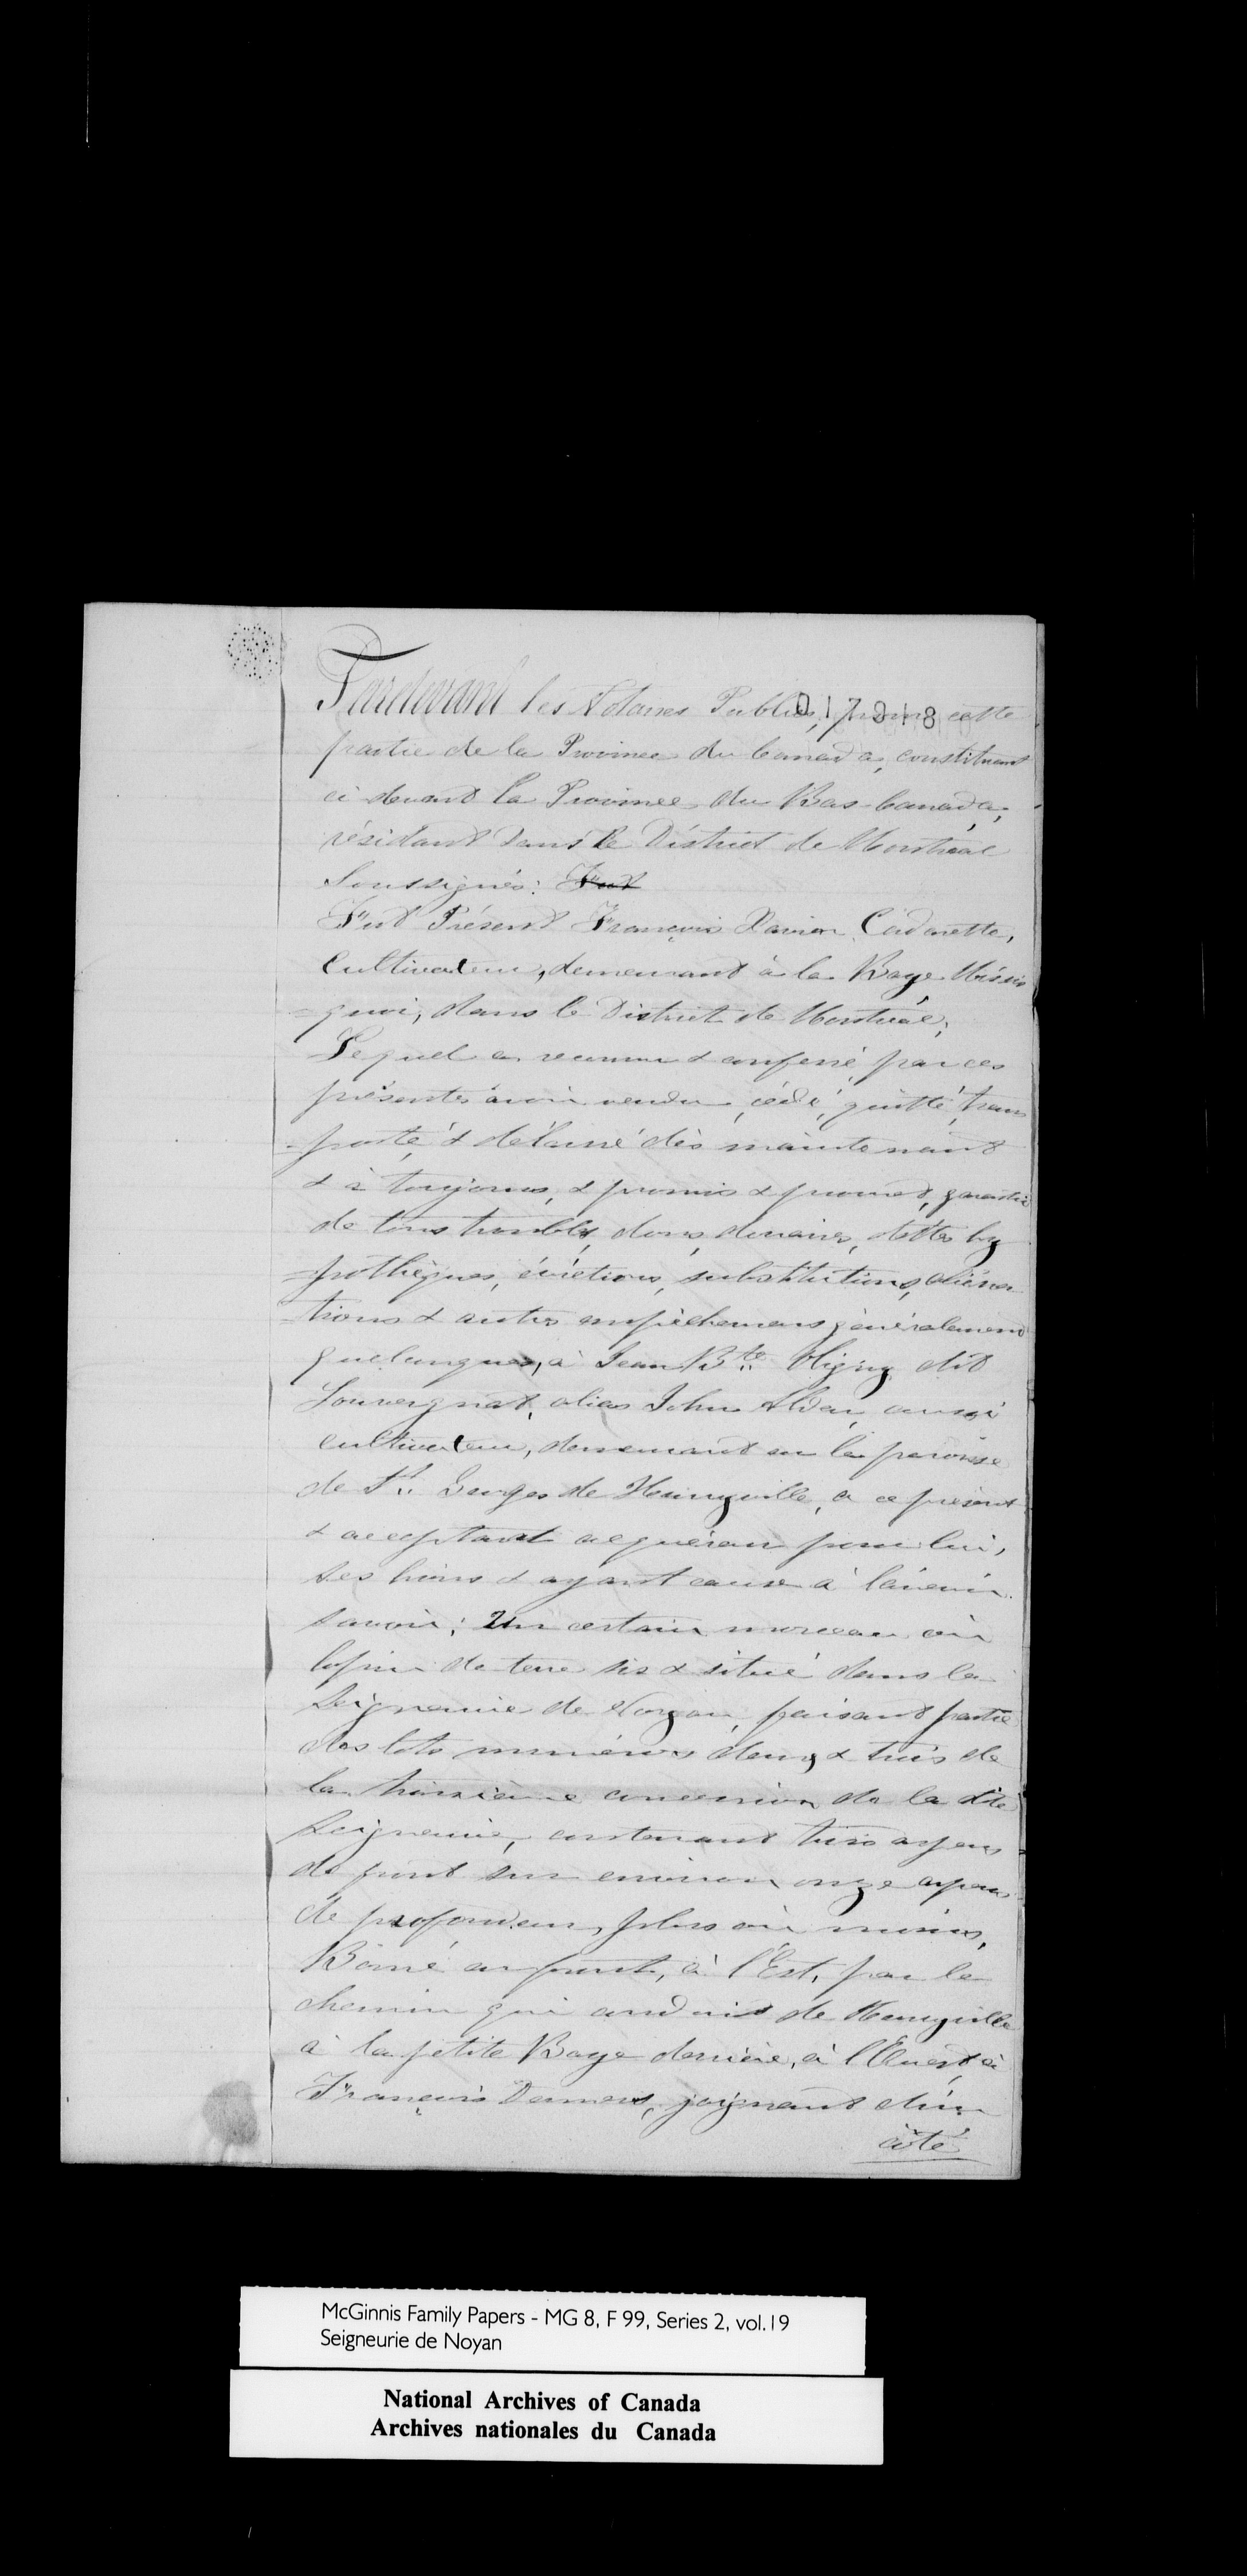 Pardevant les Notaires Publics, pour cette
017918
partie de la Province du Canada, constituant
ci devant la Province du Bas-Canada,
résidant dans le District de Montréal
Soussignés: Fut
Fut Présent François Xavier Cadorette,
Cultivateur, demeurant à la Baye Missis
=quoi, dans le District de Montréal;
Lequel a reconnu & confessé par ces
présentes avoir vendu, cédé, quitté, trans
=porté, & délaissé dès maintenant
& à toujours, & promis & promet, garantir
de tous troubles, dons, douaires, dettes hy
=pothèques, évictions, substitutions, aliéna
=tions & autres empêchemens généralement
quelconques, à Jean Bte. Oligny dit
Louvergnat, alias John Alder, aussi
cultivateur, demeurant en la paroisse
de St. Georges de Henryville, à ce présent
& acceptant acquéreur pour lui,
ses hoirs & ayant cause à l'avenir
savoir; Un certain morceau ou
lopin de terre sis & situé dans la
Seigneurie de Noyan, faisant partie
des lots numéros deux & trois de
la troisième concession de la dite
Seigneurie, contenant trois arpens
de front sur environ onze arpens
de profondeur, plus ou moins,
Borné en front, à l'Est, par le
chemin qui conduit de Henryville
à la petite Baye derrière, à l'Ouest, à
François Demers, joignant d'un
côté
McGinnis Family Papers - MG 8, F 99, Series 2, vol.19
Seigneurie de Noyan
National Archives of Canada
Archives nationales du Canada